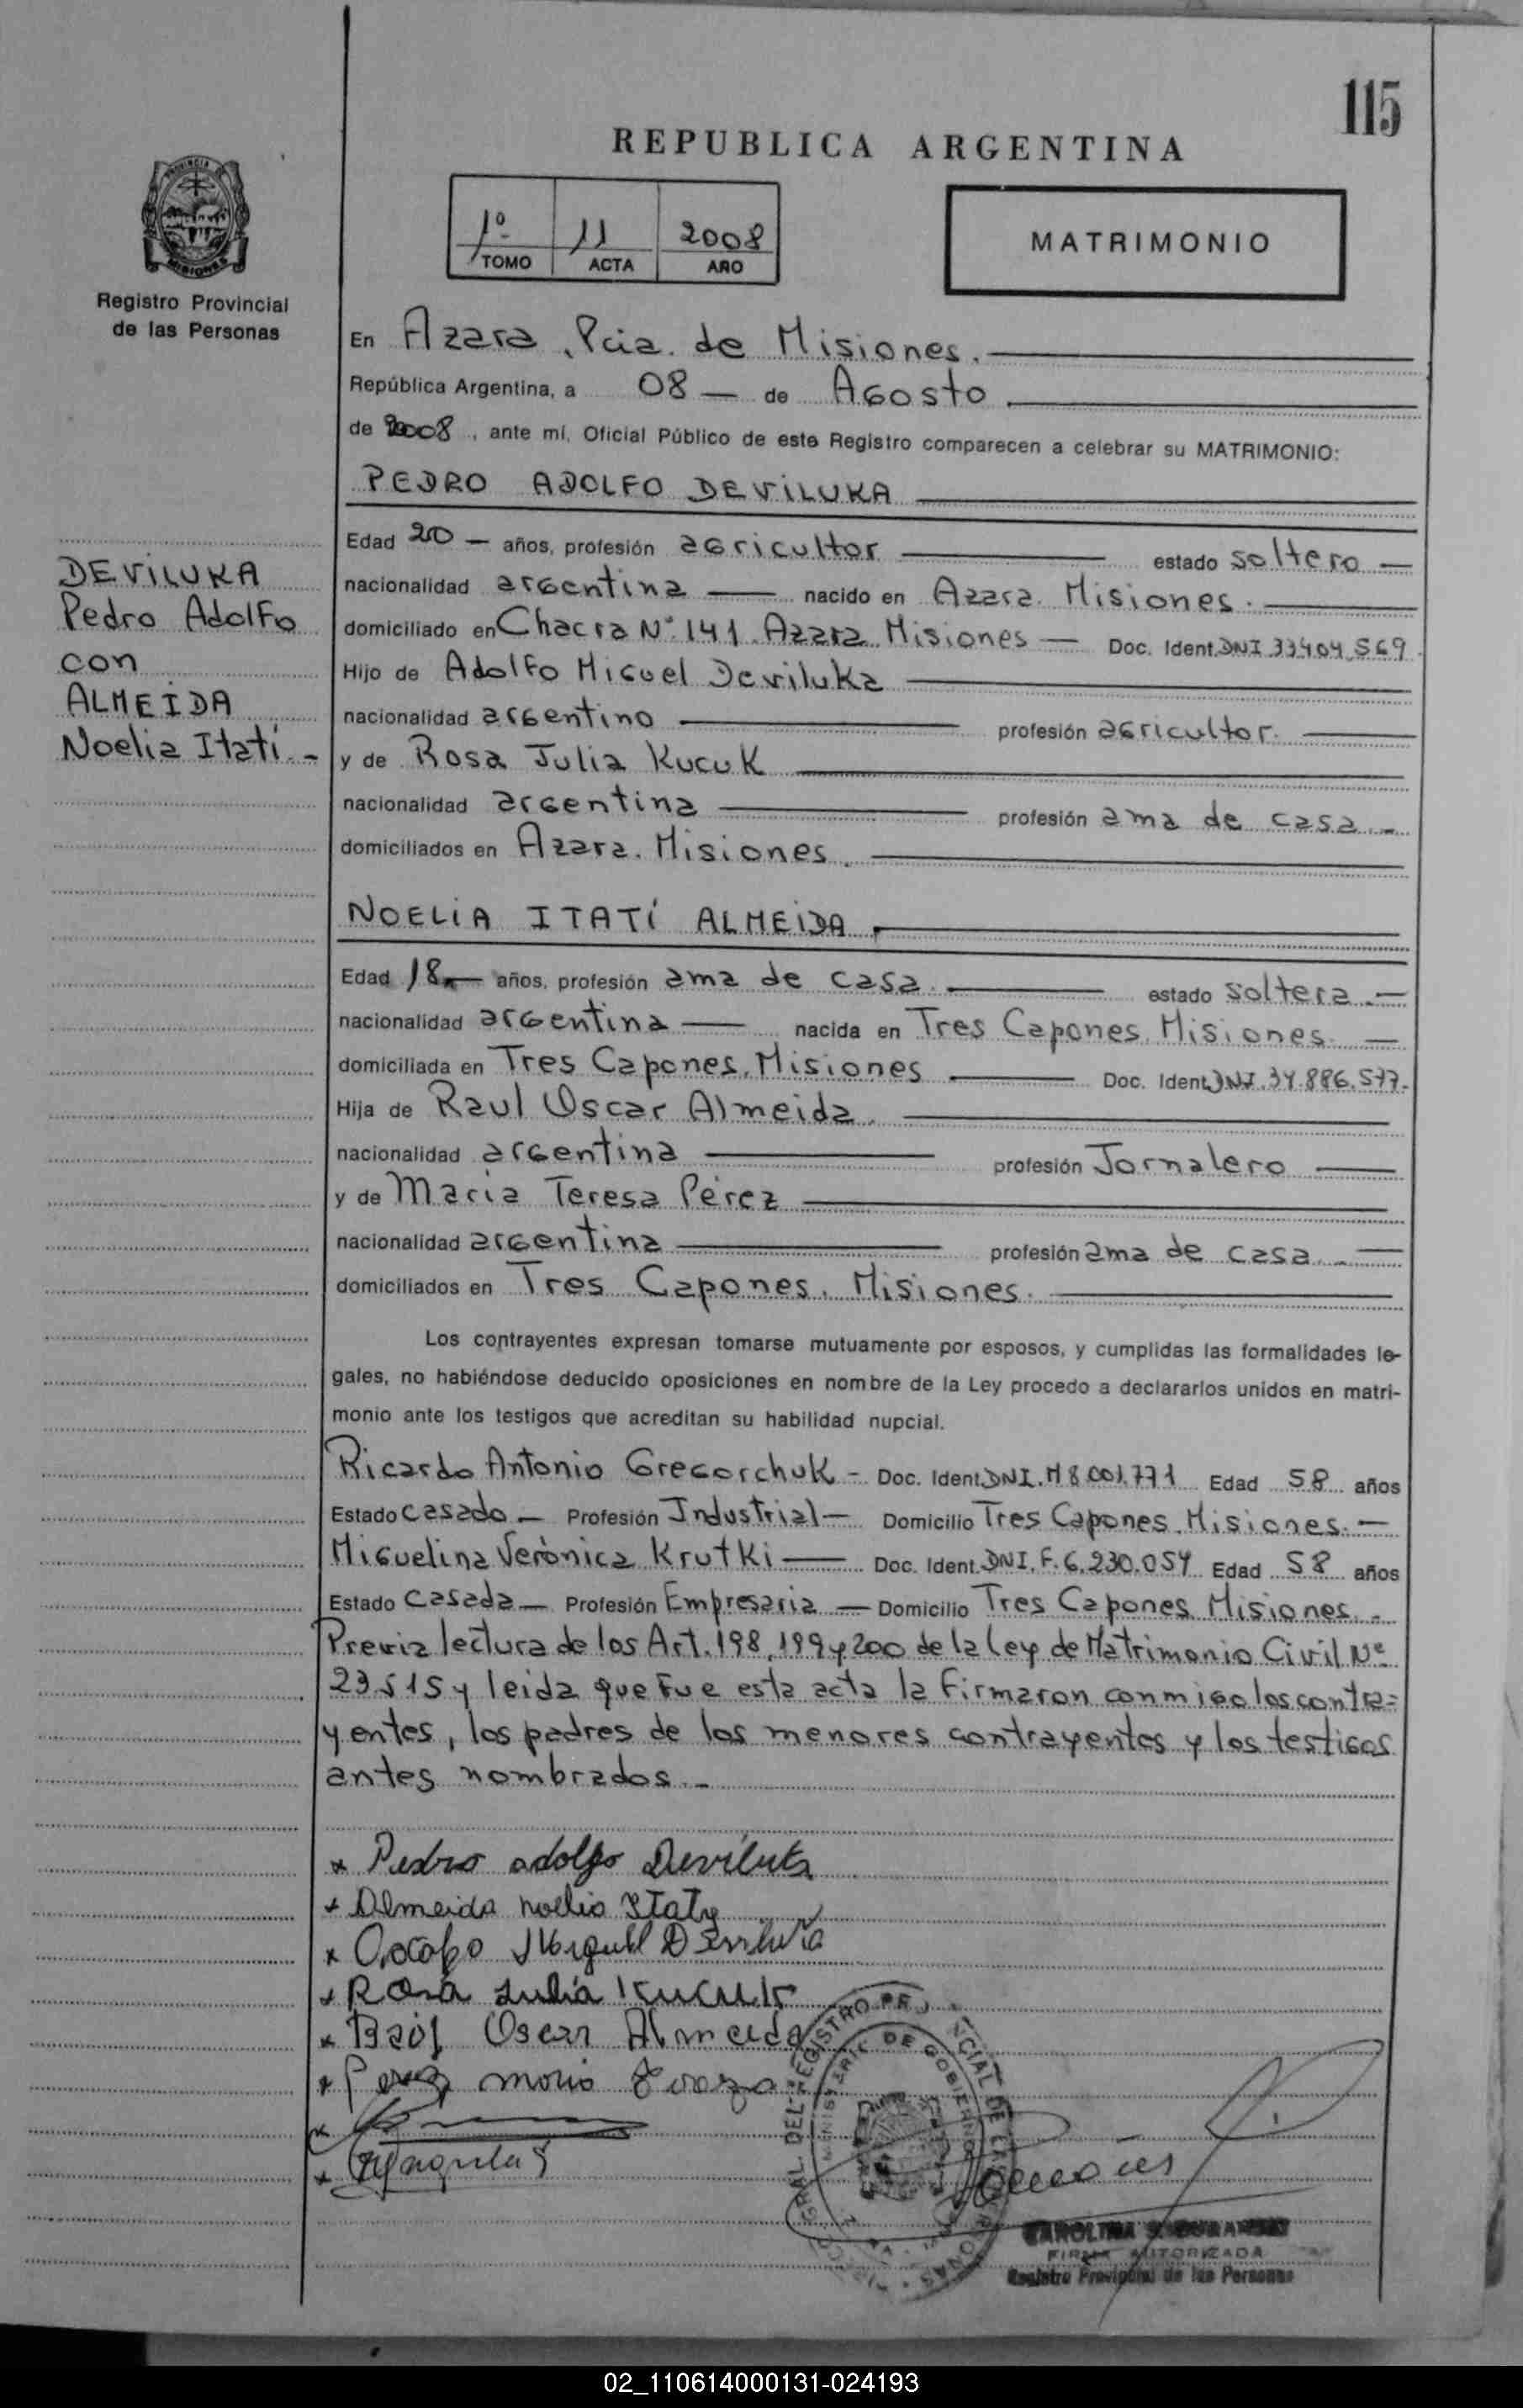 115
REPUBLICA ARGENTINA
1º 11 2008
TOMO ACTA AÑO
MATRIMONIO
PROVINCIA DE
MISIONES
Registro Provincial
de las Personas
En Azara, Pcia. de Misiones.
República Argentina, a 08 — de Agosto
de 2008, ante mí, Oficial Público de este Registro comparecen a celebrar su MATRIMONIO:
PEDRO ADOLFO DEVILUKA
DEVILUKA
Pedro Adolfo
con
ALMEIDA
Noelia Itatí.-
Edad 20 — años, profesión agricultor — estado soltero —
nacionalidad argentina — nacido en Azara. Misiones. —
domiciliado en Chacra Nº 141. Azara. Misiones — Doc. Ident. DNI 33404.569
Hijo de Adolfo Miguel Deviluka —
nacionalidad argentino — profesión agricultor. —
y de Rosa Julia Kucuk —
nacionalidad argentina — profesión ama de casa.-
domiciliados en Azara. Misiones. —
NOELIA ITATÍ ALMEIDA. —
Edad 18 — años, profesión ama de casa. — estado soltera.—
nacionalidad argentina — nacida en Tres Capones, Misiones. —
domiciliada en Tres Capones, Misiones — Doc. Ident. DNI.34.886.577.
Hija de Raul Oscar Almeida. —
nacionalidad argentina — profesión Jornalero —
y de Maria Teresa Pérez —
nacionalidad argentina — profesión ama de casa. —
domiciliados en Tres Capones. Misiones. —
Los contrayentes expresan tomarse mutuamente por esposos, y cumplidas las formalidades le-
gales, no habiéndose deducido oposiciones en nombre de la Ley procedo a declararlos unidos en matri-
monio ante los testigos que acreditan su habilidad nupcial.
Ricardo Antonio Gregorchuk - Doc. Ident. DNI. M 8.001.771 Edad 58 años
Estado casado — Profesión Industrial — Domicilio Tres Capones. Misiones. —
Miguelina Verónica Krutki — Doc. Ident. DNI. F. 6.230.054 Edad 58 años
Estado Casada — Profesión Empresaria — Domicilio Tres Capones Misiones.-
Previa lectura de los Art. 198, 199 y 200 de la Ley de Matrimonio Civil Nº
23515 y leida que fue esta acta la firmaron conmigo los contra=
yentes, los padres de los menores contrayentes y los testigos
antes nombrados.-
* Pedro adolfo Deviluka
* Almeida noelia Itaty
* Miguel Deviluka
* Rosa Julia Kucuk
* Oscar Almeida
* Perez
FIRMA AUTORIZADA
Registro Provincial de las Personas
02_110614000131-024193